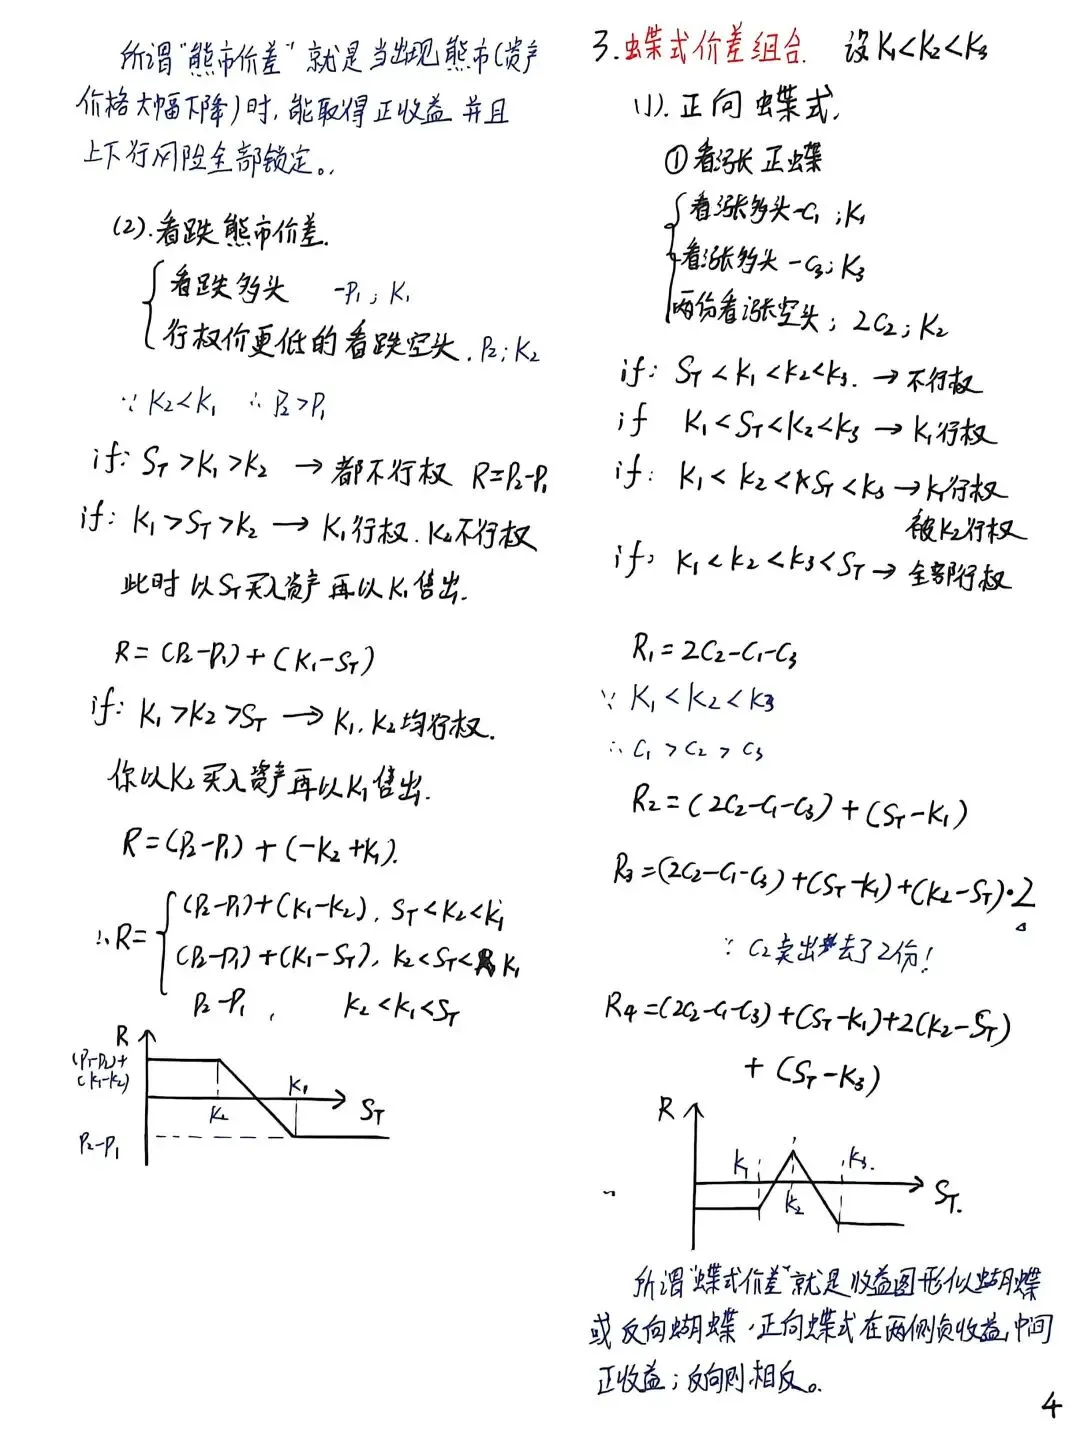 所谓“熊市价差”就是当出现熊市(资产
价格大幅下降)时,能取得正收益 并且
上下行风险全部锁定。
(2).看跌熊市价差.
看跌多头 -P₁; K₁
行权价更低的看跌空头. P₂; K₂
∵ K₂<K₁ ∴ P₂>P₁
if: S_T >K₁>K₂ → 都不行权 R=P₂-P₁
if: K₁>S_T>K₂ → K₁行权. K₂不行权
此时以S_T买入资产再以K₁售出.
R=(P₂-P₁)+(K₁-S_T)
if: K₁>K₂>S_T → K₁. K₂均行权.
你以K₂买入资产再以K₁售出.
R=(P₂-P₁)+(-K₂+K₁).
∴R=
(P₂-P₁)+(K₁-K₂). S_T<K₂<K₁
(P₂-P₁)+(K₁-S_T), K₂<S_T<K₁
P₂-P₁, K₂<K₁<S_T
R
(P₁-P₂)+
(K₁-K₂)
K₂
K₁
S_T
P₂-P₁
3.蝶式价差组合. 设K₁<K₂<K₃
(1).正向蝶式,
①看涨正蝶
看涨多头-C₁;K₁
看涨多头-C₃;K₃
两份看涨空头; 2C₂;K₂
if: S_T<K₁<K₂<K₃. → 不行权
if K₁<S_T<K₂<K₃ → K₁行权
if: K₁<K₂<S_T<K₃ → K₁行权
被K₂行权
if: K₁<K₂<K₃<S_T → 全部行权
R₁=2C₂-C₁-C₃
∵ K₁<K₂<K₃
∴ C₁>C₂>C₃
R₂=(2C₂-C₁-C₃)+(S_T-K₁)
R₃=(2C₂-C₁-C₃)+(S_T-K₁)+(K₂-S_T)·2
∵ C₂卖出去了2份!
R₄=(2C₂-C₁-C₃)+(S_T-K₁)+2(K₂-S_T)
+(S_T-K₃)
R
K₁
K₂
K₃.
S_T.
所谓“蝶式价差”就是收益图形似蝴蝶
或反向蝴蝶,正向蝶式在两侧负收益,中间
正收益;反向则相反。
4